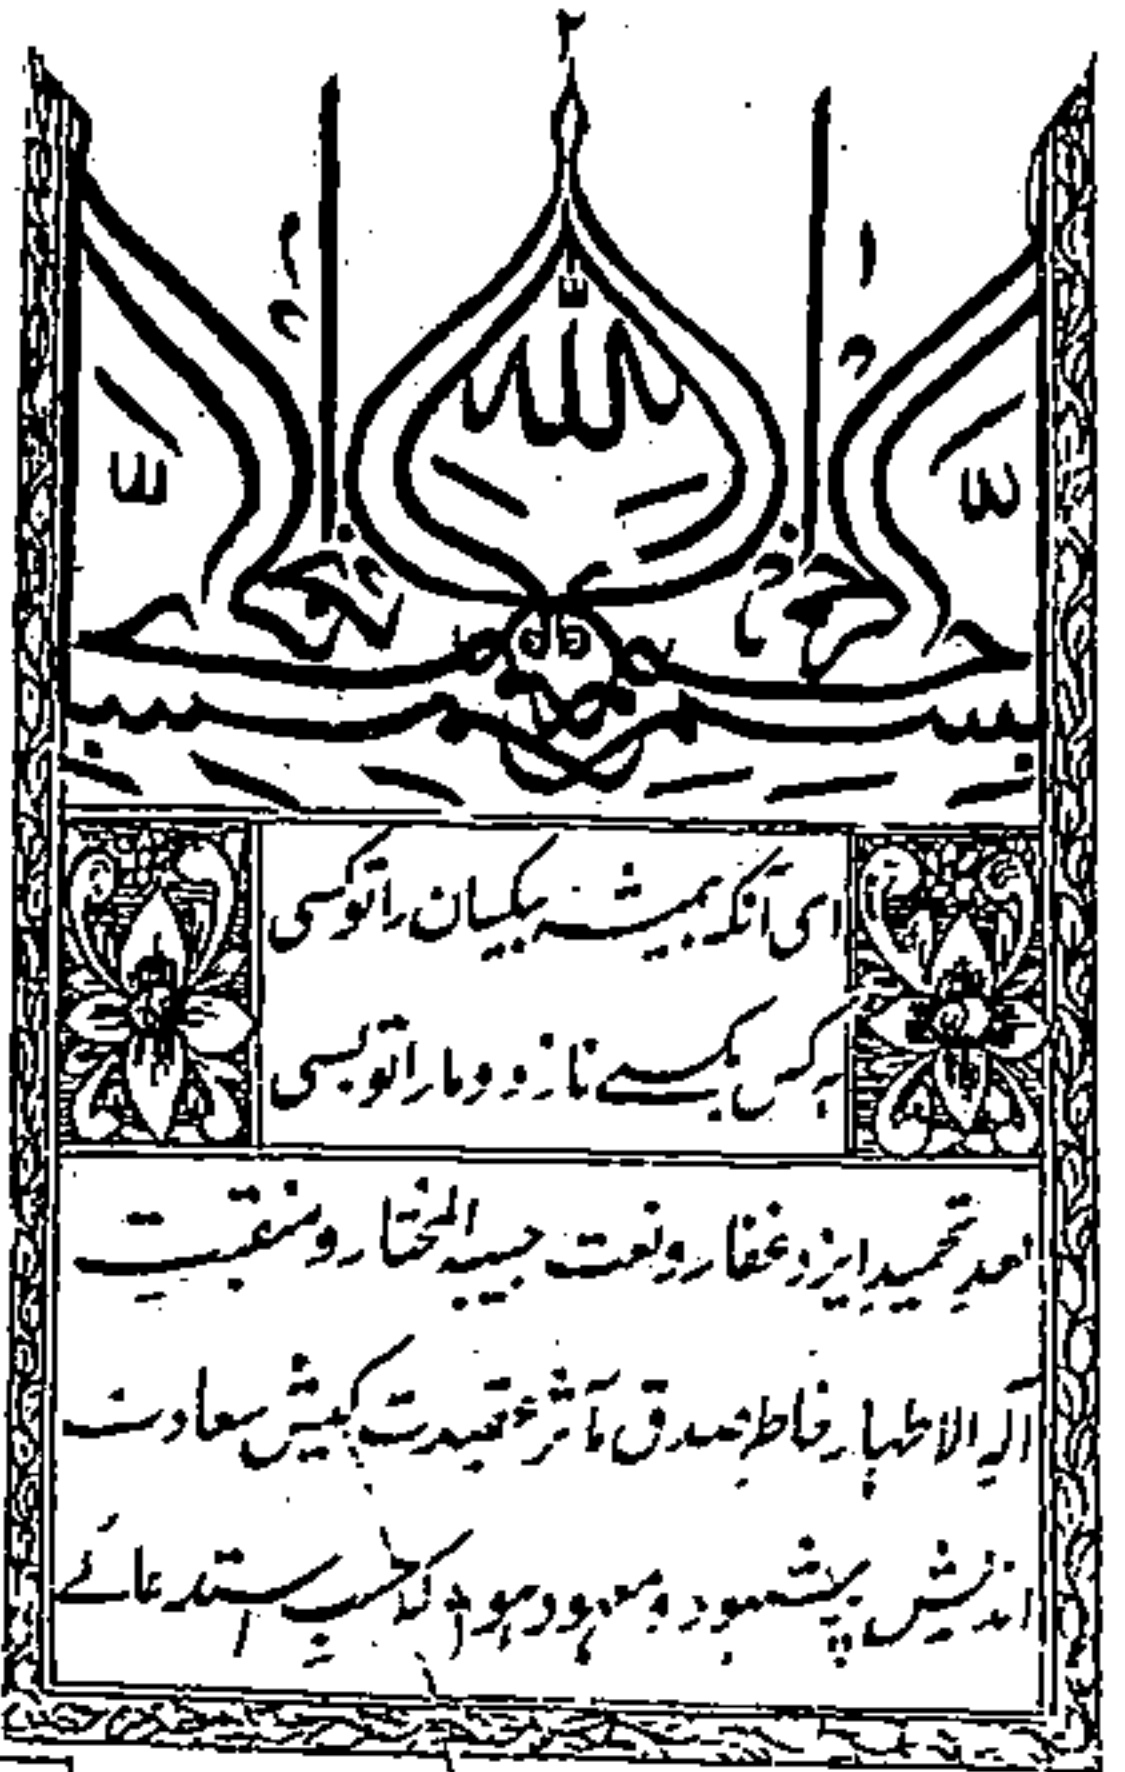 ۲
بسم الله الرحمن الرحیم
ای آنکه همیشه بیکسان را تو کسی
هر کس بکسے نازد و ما را تو بسی
بعد تحمید ایزد غفار و نعت حبیبه المختار و منقبت
آله الاطهار بخاطر صدق مآثر عقیدت کیش سعادت
اندیش پیشهود و مباد که حسب استدعائے